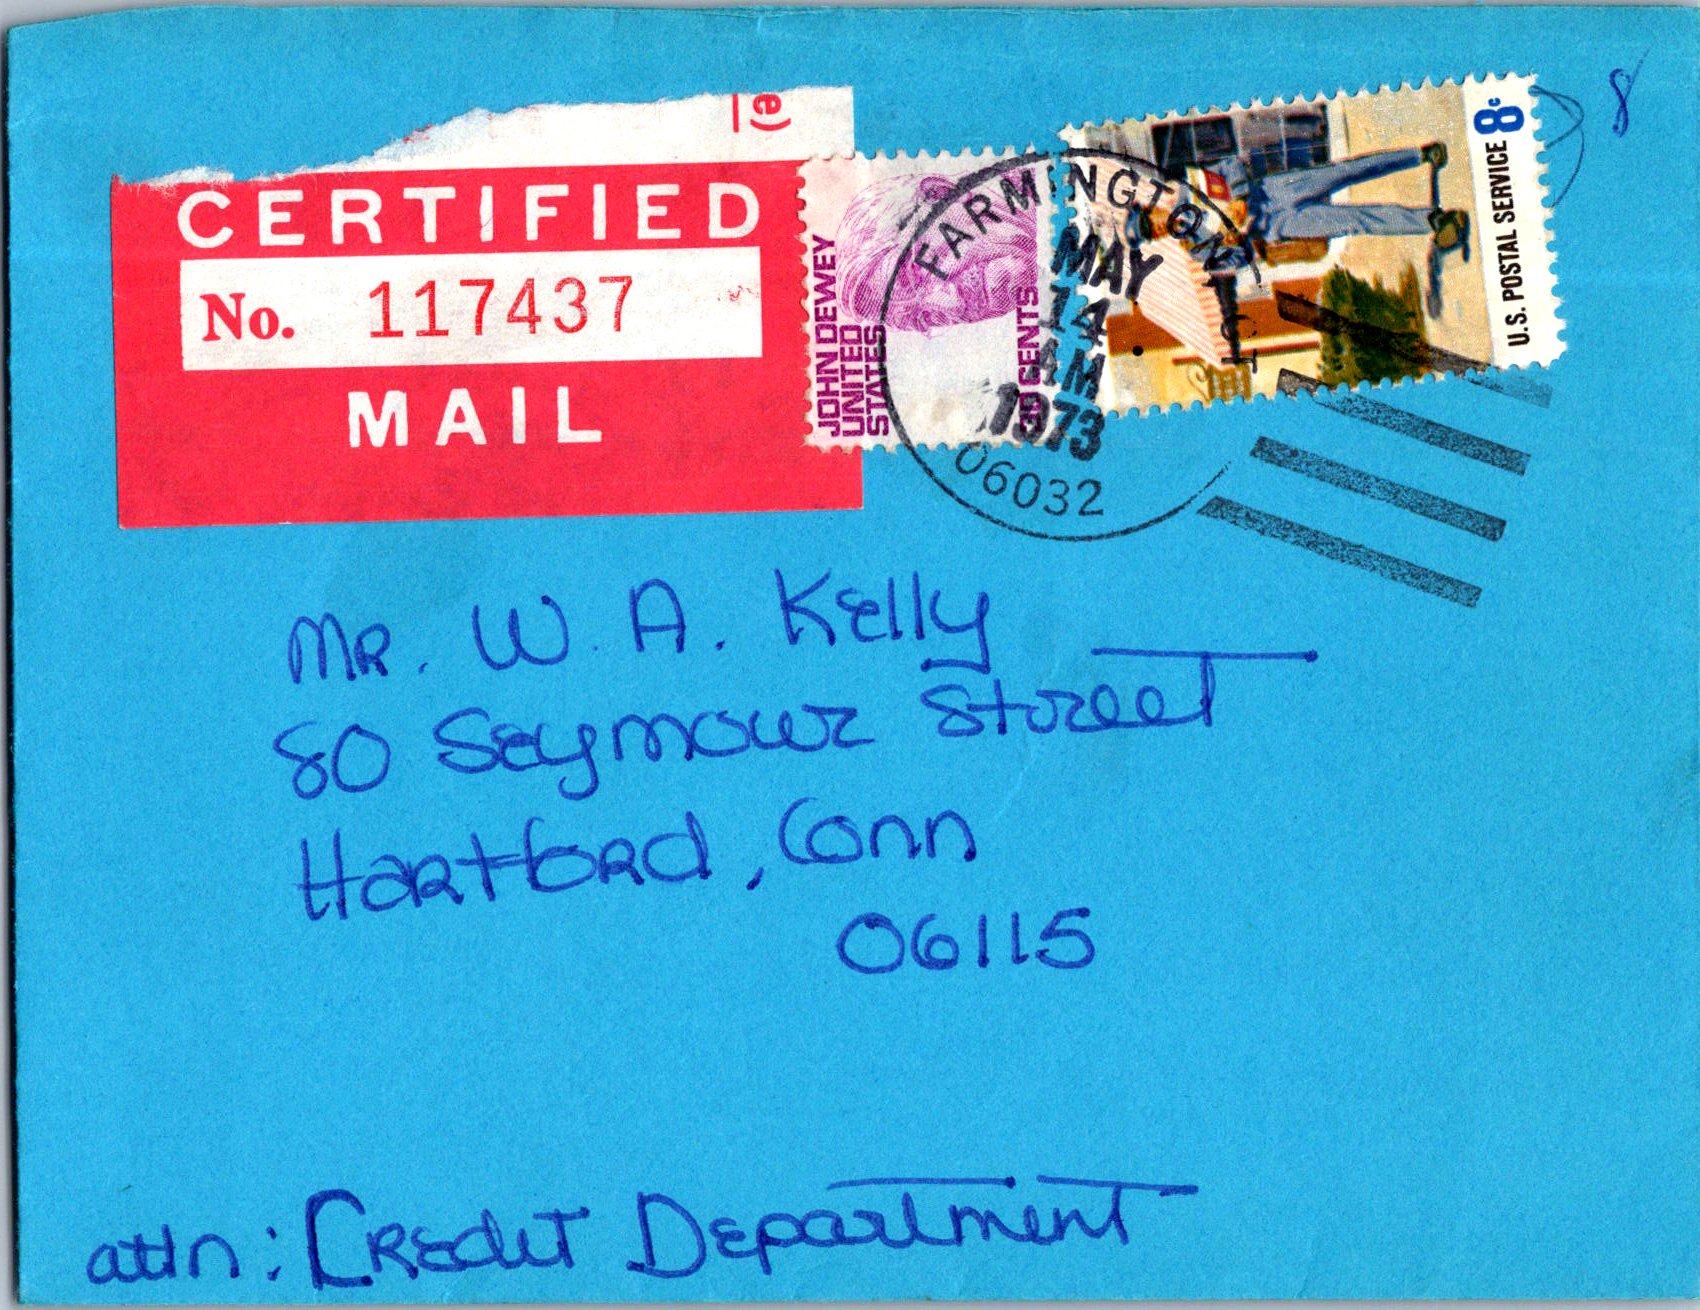 e)
CERTIFIED
No. 117437
MAIL
JOHN DEWEY
UNITED
STATES
30 CENTS
FARMINGTON
MAY
14
AM
1973
06032
8c
U.S. POSTAL SERVICE
8
Mr. W. A. Kelly
80 Seymour Street
Hartford, Conn
06115
attn: Credit Department